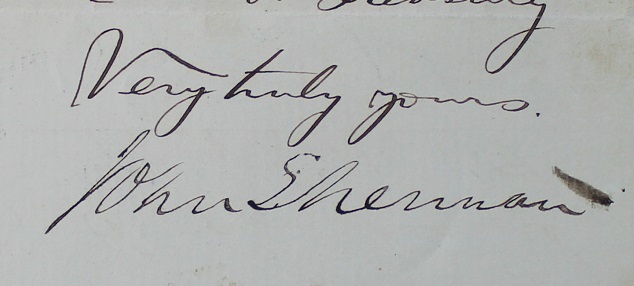 Treasury
Very truly yours.
John Sherman